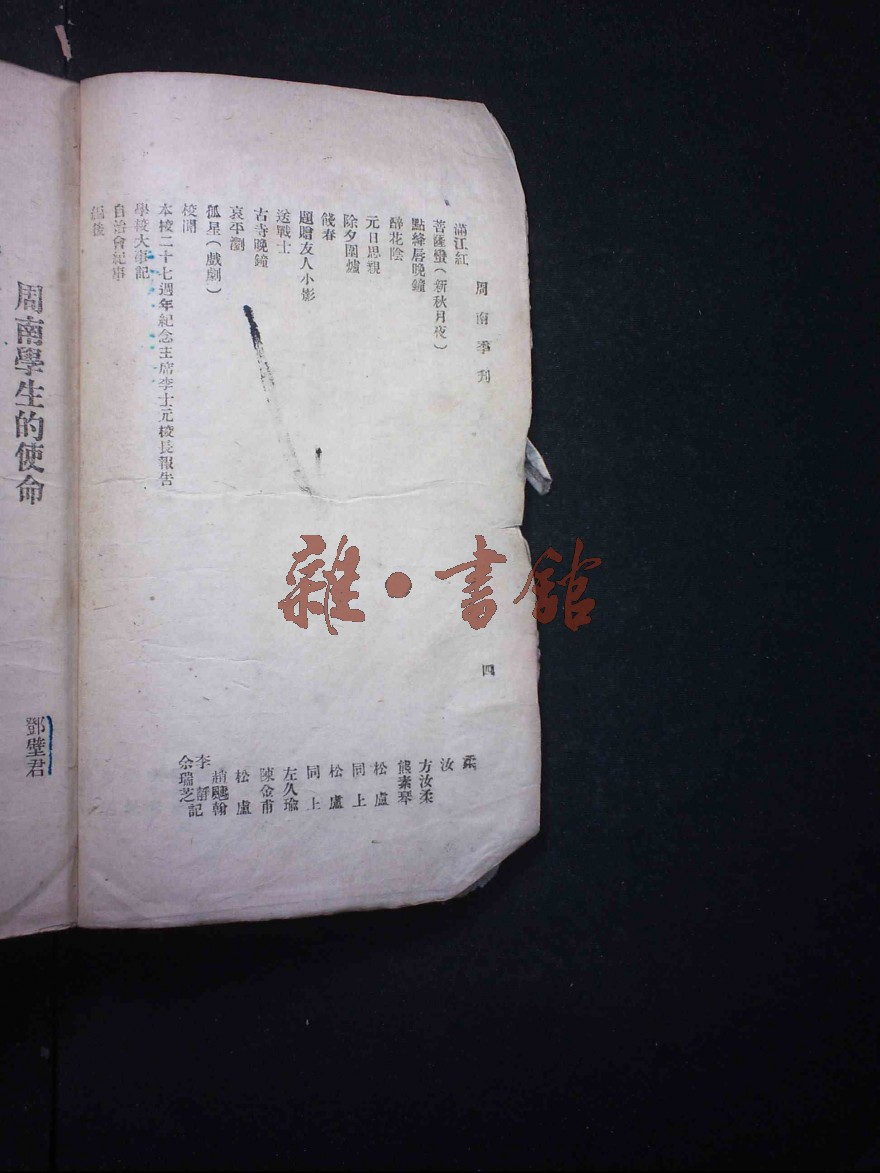 周南季刊
四
滿江紅
菩薩蠻(新秋月夜)
點絳唇晚鐘
醉花陰
元日思親
除夕圍爐
餞春
題贈友人小影
送戰士
古寺晚鐘
哀平瀏
孤星(戲劇)
校聞
本校二十七週年紀念主席李士元校長報告
學校大事記
自治會紀事
編後
柔
汝
方汝柔
熊素琴
松盧
同上
松盧
同上
左久瑜
陳金甫
松盧
趙颺翰
李靜
余瑞芝記
周南學生的使命
鄧璧君
雜·書館